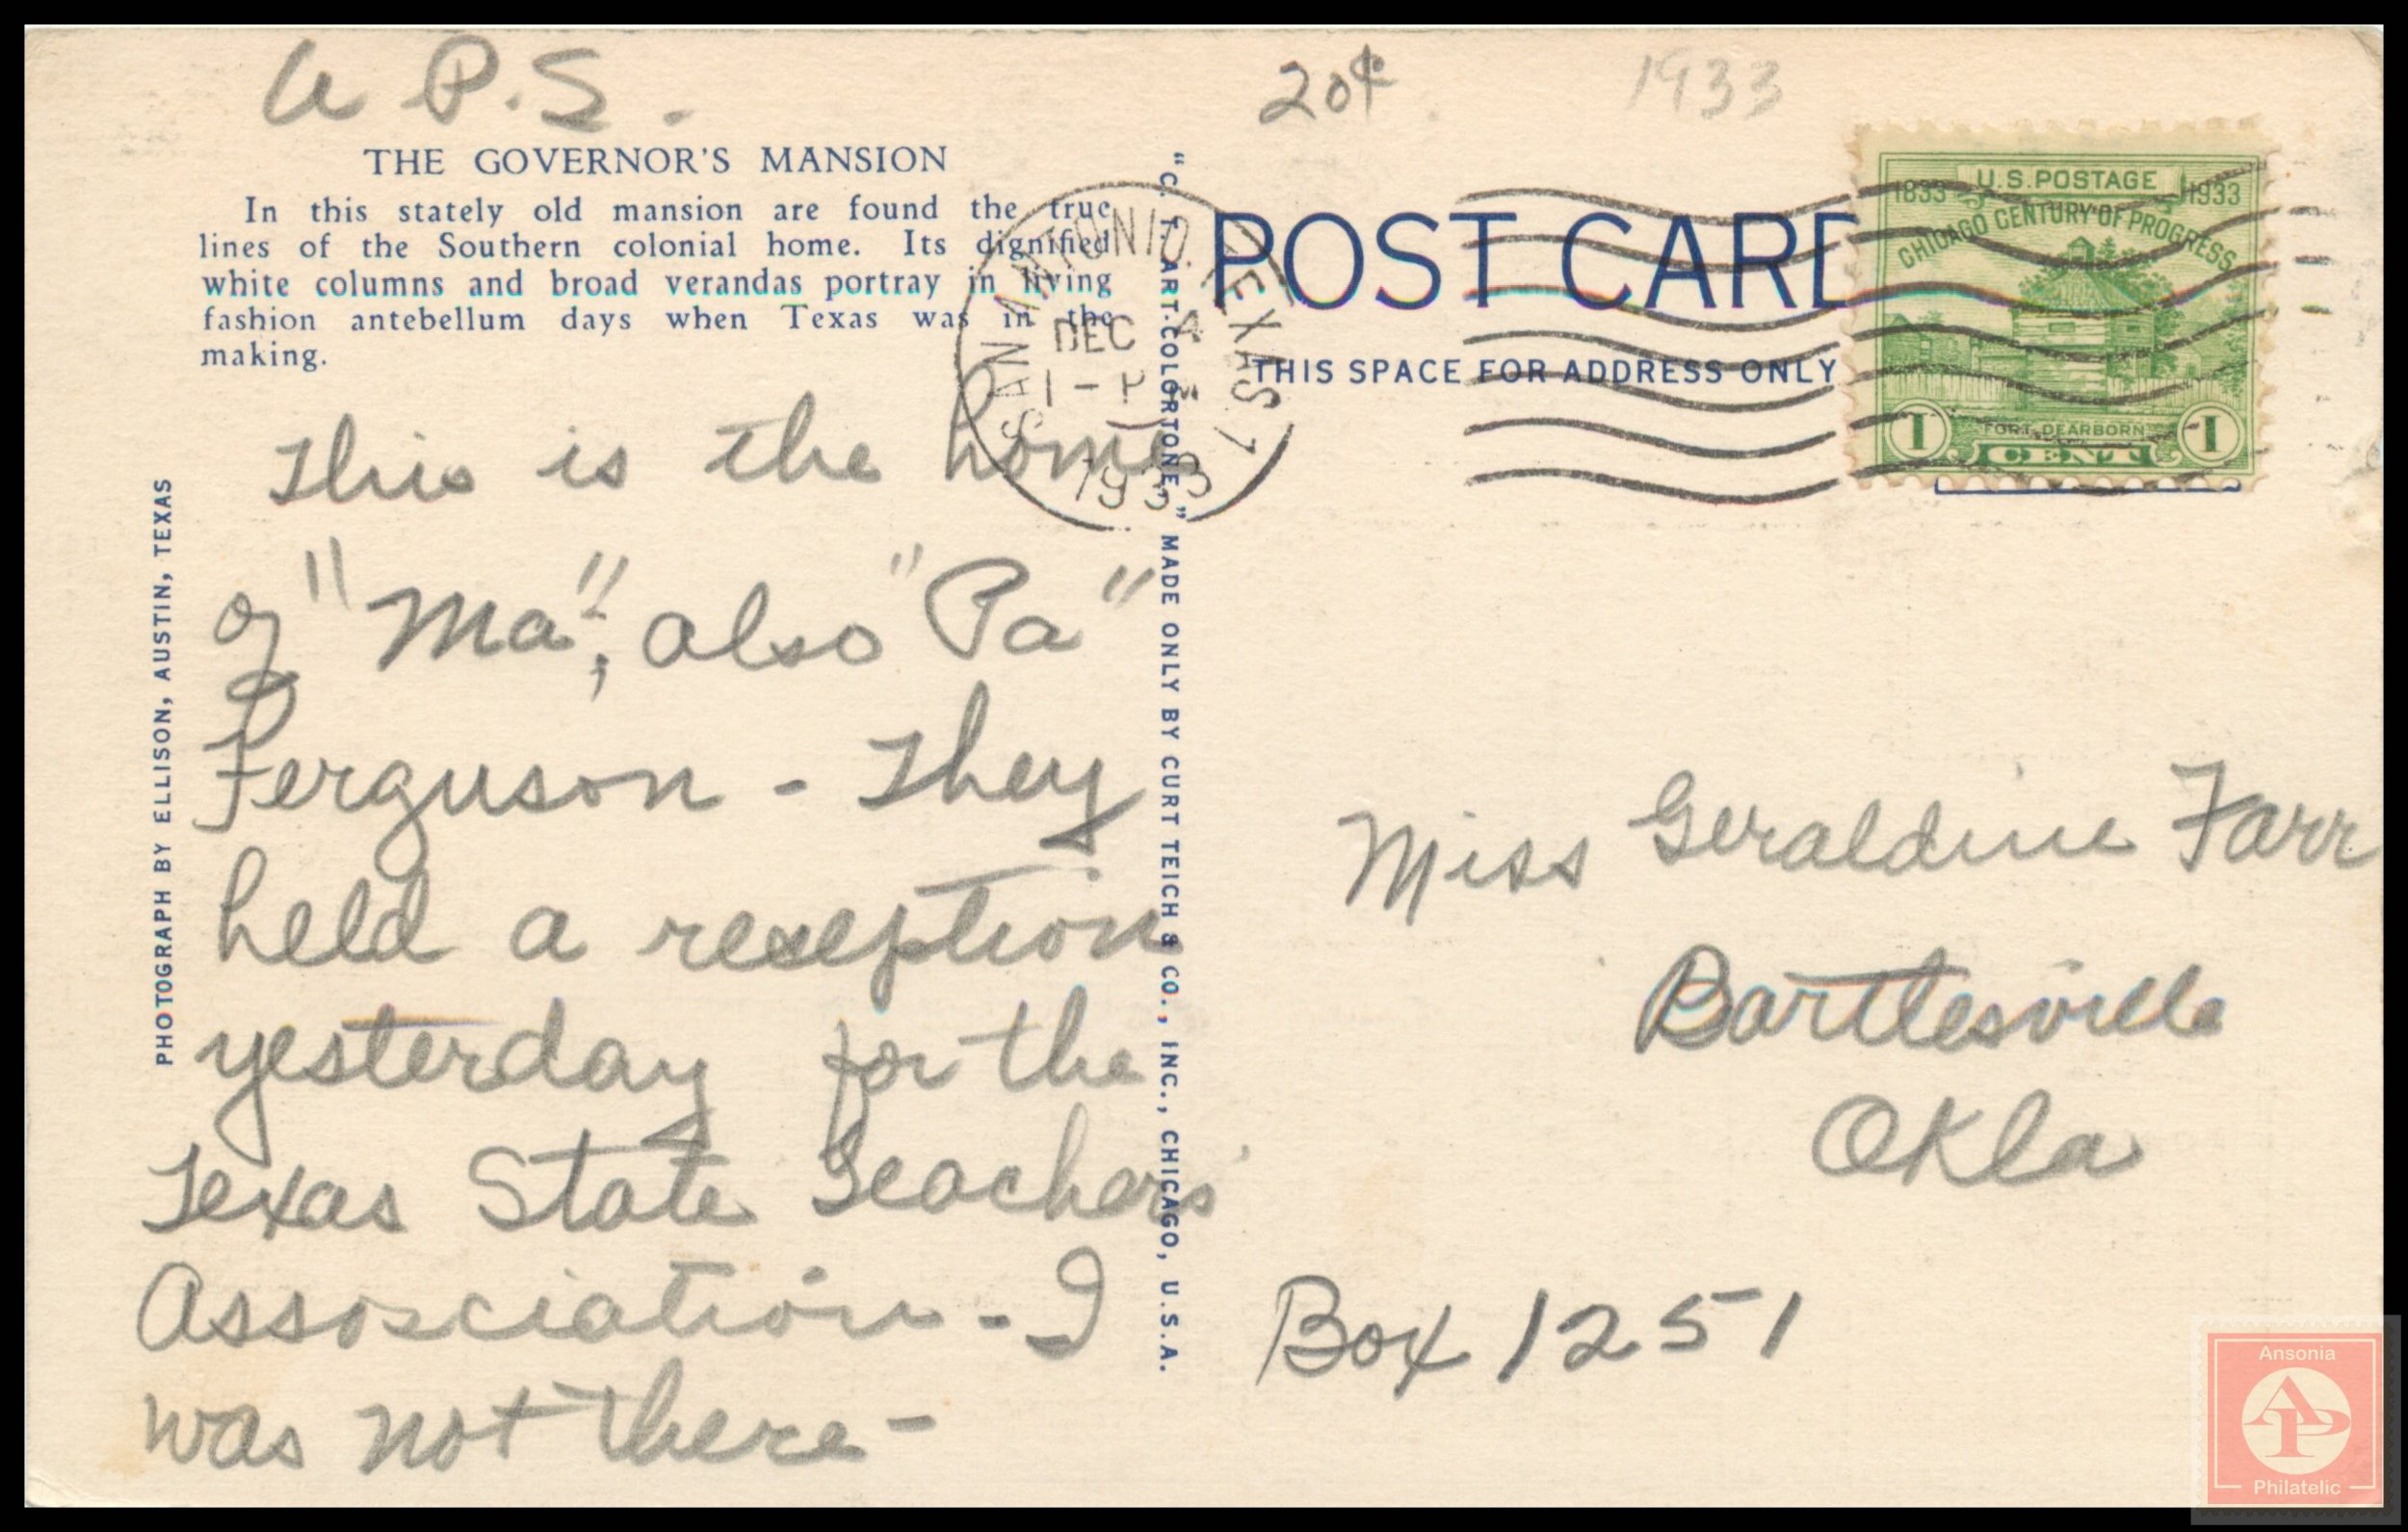 a P.S.
20¢
1933
THE GOVERNOR'S MANSION
In this stately old mansion are found the true
lines of the Southern colonial home. Its dignified
white columns and broad verandas portray in living
fashion antebellum days when Texas was in the
making.
PHOTOGRAPH BY ELLISON, AUSTIN, TEXAS
This is the home
of "Ma", also "Pa"
Ferguson - They
held a reseption
yesterday for the
Texas State Teachers'
Assosciation - I
was not there -
"C. T. ART-COLORTONE," MADE ONLY BY CURT TEICH & CO., INC., CHICAGO, U.S.A.
SAN ANTONIO, TEXAS 1
DEC 4
1 - P
1933
POST CARD
THIS SPACE FOR ADDRESS ONLY
U.S. POSTAGE
1833 1933
CHICAGO CENTURY OF PROGRESS
FORT DEARBORN
1 CENT 1
Miss Geraldine Farr
Bartlesville
Okla
Box 1251
Ansonia
AP
Philatelic